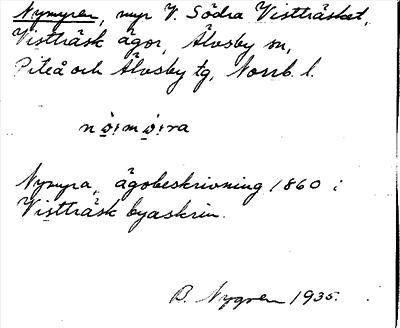 Nymyran, myr V. Södra Vistträsket,
Vistträsk ägor, Älvsby sn,
Piteå och Älvsby tg, Norrb. l.
nø̀i̯mø̀i̯ra
Nymyra, ägobeskrivning 1860 i
Vistträsk byaskrin.
B. Nygren 1935.